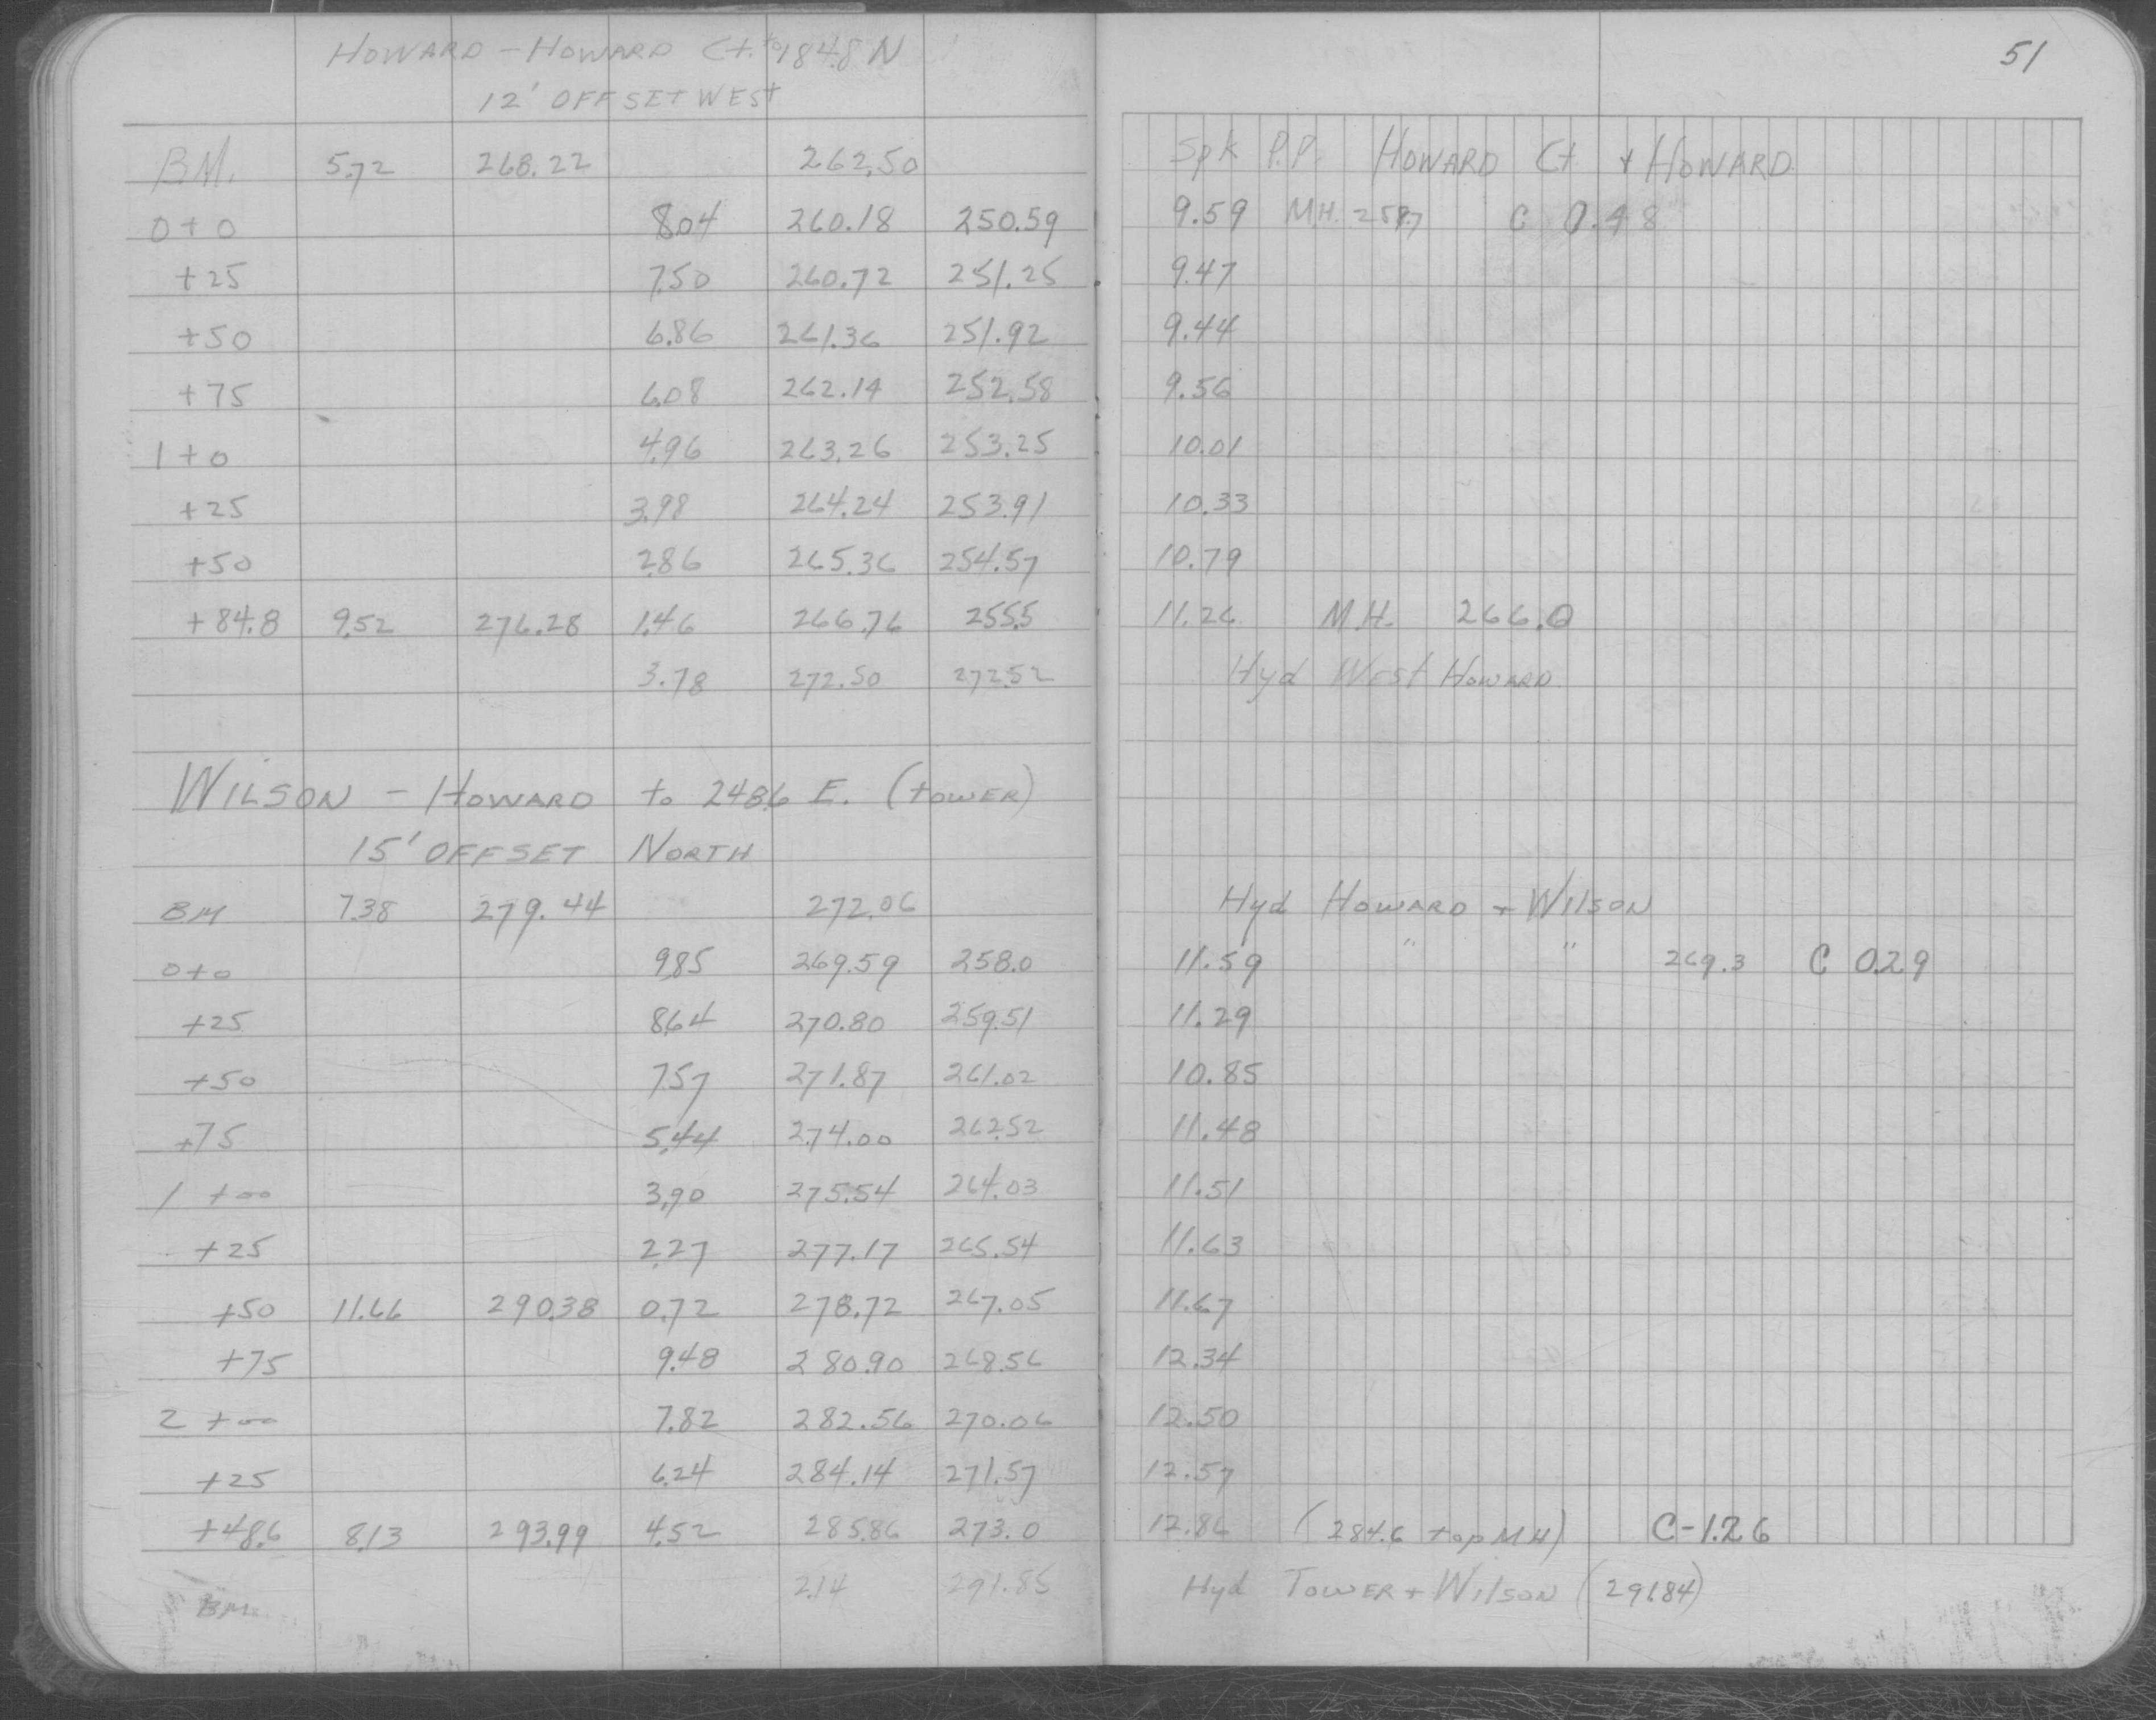 51
HOWARD - HOWARD Ct. to 184.8 N
12' OFFSET WEST
B.M. 5.72 268.22 262.50 Spk P.P. HOWARD Ct + HOWARD
0+0 8.04 260.18 250.59 9.59 M.H. C 0.48
+25 7.50 260.72 251.25 9.47
+50 6.86 261.36 251.92 9.44
+75 6.08 262.14 252.58 9.56
1+0 4.96 263.26 253.25 10.01
+25 3.98 264.24 253.91 10.33
+50 2.86 265.36 254.57 10.79
+84.8 9.52 276.28 1.46 266.76 255.5 11.26 M.H. 266.0
3.78 272.50 272.52 Hyd West HOWARD
WILSON - HOWARD to 248.6 E. (TOWER)
15' OFFSET NORTH
BM 7.38 279.44 272.06 Hyd HOWARD + WILSON
0+0 9.85 269.59 258.0 11.59 " " 269.3 C 0.29
+25 8.64 270.80 259.51 11.29
+50 7.57 271.87 261.02 10.85
+75 5.44 274.00 262.52 11.48
1+00 3.90 275.54 264.03 11.51
+25 2.27 277.17 265.54 11.63
+50 11.66 290.38 0.72 278.72 267.05 11.67
+75 9.48 280.90 268.56 12.34
2+00 7.82 282.56 270.06 12.50
+25 6.24 284.14 271.57 12.57
+48.6 8.13 293.99 4.52 285.86 273.0 12.86 (284.6 top MH) C-1.26
BM 2.14 291.85 Hyd TOWER + WILSON (291.84)